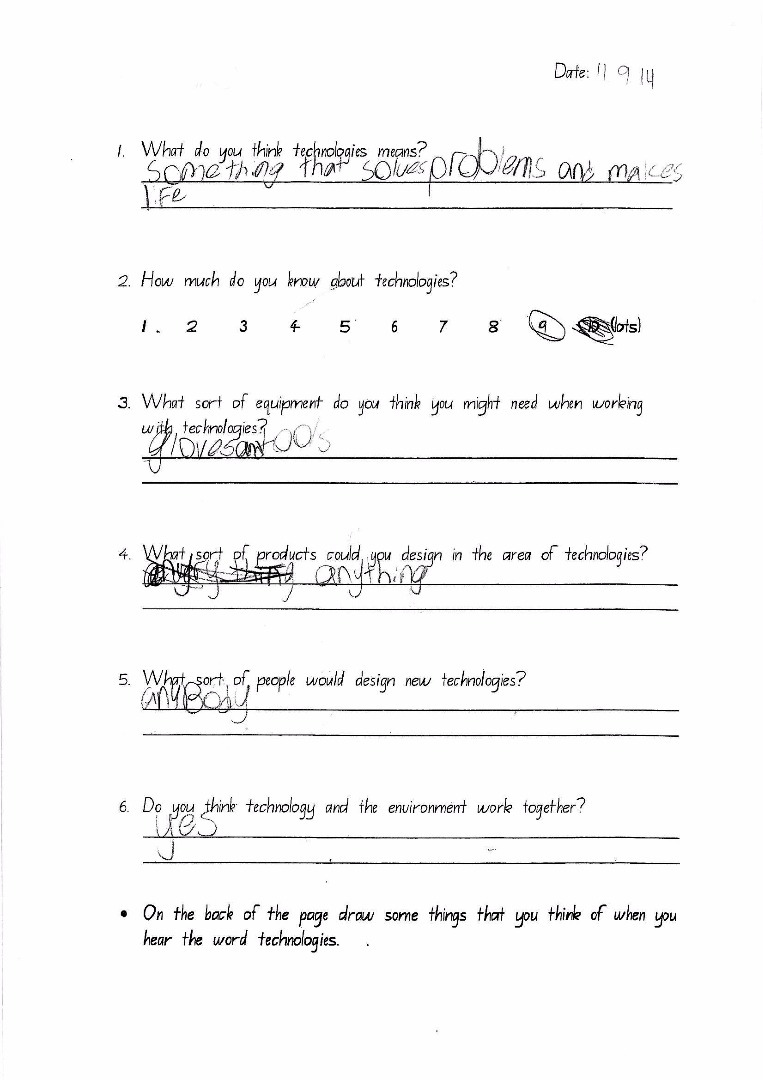 Date: 11 9 14
1. What do you think technologies means?
Something that solves problems and makes
life
2. How much do you know about technologies?
1. 2 3 4 5 6 7 8 9 10 (lots)
3. What sort of equipment do you think you might need when working
with technologies?
gloves and tools
4. What sort of products could you design in the area of technologies?
anything
5. What sort of people would design new technologies?
anyBody
6. Do you think technology and the environment work together?
yes
• On the back of the page draw some things that you think of when you
hear the word technologies.